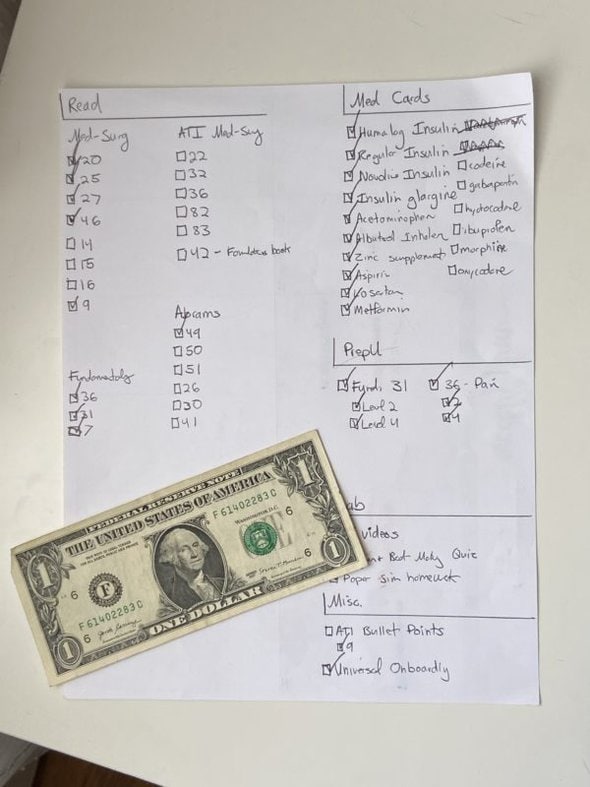 Read
Med-Surg
20
25
27
46
14
15
16
9
Fundamentals
36
31
7
ATI Med-Surg
22
32
36
82
83
42 - Foundations book
Abrams
49
50
51
26
30
41
Med Cards
Humalog Insulin
Regular Insulin
Novolin Insulin
Insulin glargine
Acetominophen
Albuterol Inhaler
Zinc supplement
Aspirin
Losartan
Metformin
codeine
gabapentin
hydrocodone
ibuprofen
morphine
oxycodone
PrepU
Fund. 31
Level 2
Level 4
36 - Pain
4
ab
videos
Quiz
Paper Sim homework
Misc.
ATI Bullet Points
9
Universal Onboarding
FEDERAL RESERVE NOTE
THE UNITED STATES OF AMERICA
F 61402283 C
WASHINGTON, D.C.
F
6
6
6
6
F 61402283 C
ONE DOLLAR
1
1
1
1